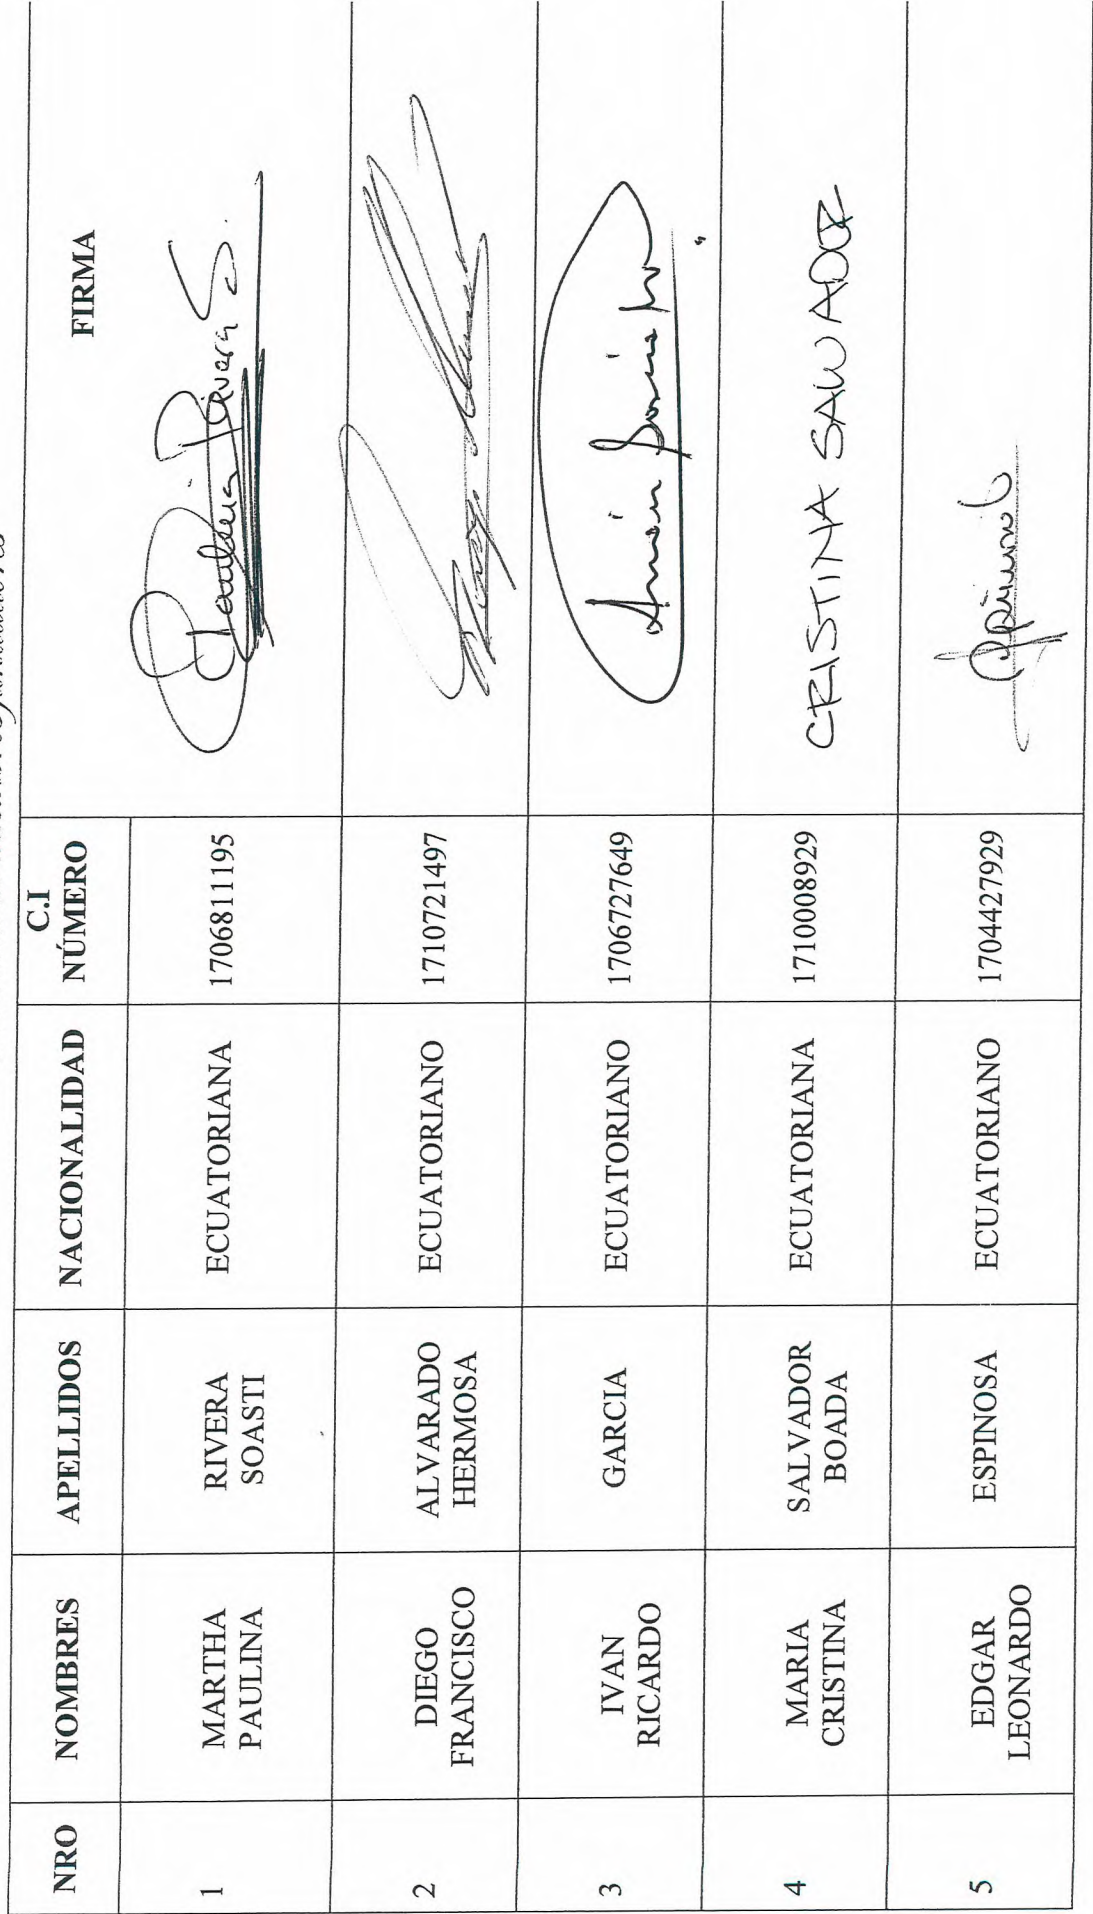 NRO NOMBRES APELLIDOS NACIONALIDAD C.I NÚMERO FIRMA
1 MARTHA PAULINA RIVERA SOASTI ECUATORIANA 1706811195 Paulina Rivera S.
2 DIEGO FRANCISCO ALVARADO HERMOSA ECUATORIANO 1710721497
3 IVAN RICARDO GARCIA ECUATORIANO 1706727649
4 MARIA CRISTINA SALVADOR BOADA ECUATORIANA 1710008929 CRISTINA SALVADOR
5 EDGAR LEONARDO ESPINOSA ECUATORIANO 1704427929